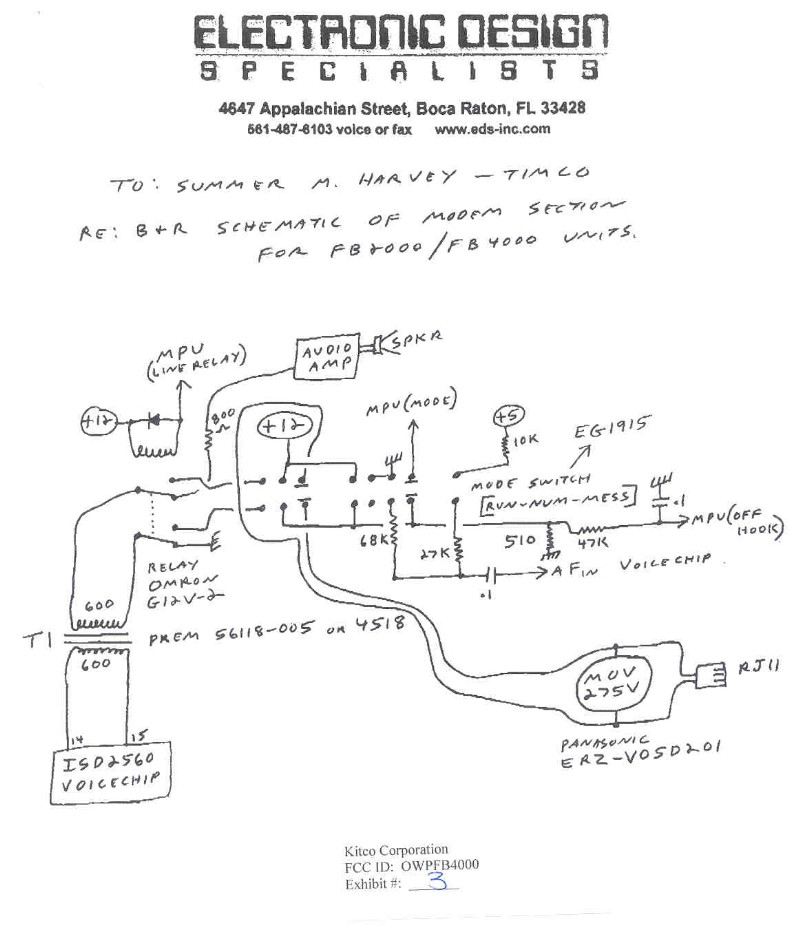 ELECTRONIC DESIGN
SPECIALISTS
4647 Appalachian Street, Boca Raton, FL 33428
561-487-6103 voice or fax www.eds-inc.com
TO: SUMMER M. HARVEY - TIMCO
RE: B+R SCHEMATIC OF MODEM SECTION
FOR FB2000/FB4000 UNITS.
MPU
(LINE RELAY)
AUDIO
AMP
SPKR
+12
800
Ω
+12
MPU(MODE)
+5
10K
EG1915
MODE SWITCH
[RUN-NUM-MESS]
.1
MPU(OFF
HOOK)
68K
27K
510
47K
.1
AF IN VOICECHIP
RELAY
OMRON
G12V-2
600
T1
PREM 56118-005 OR 4518
600
14
15
ISD2560
VOICECHIP
MOV
275V
RJ11
PANASONIC
ERZ-V05D201
Kitco Corporation
FCC ID: OWPFB4000
Exhibit #: 3